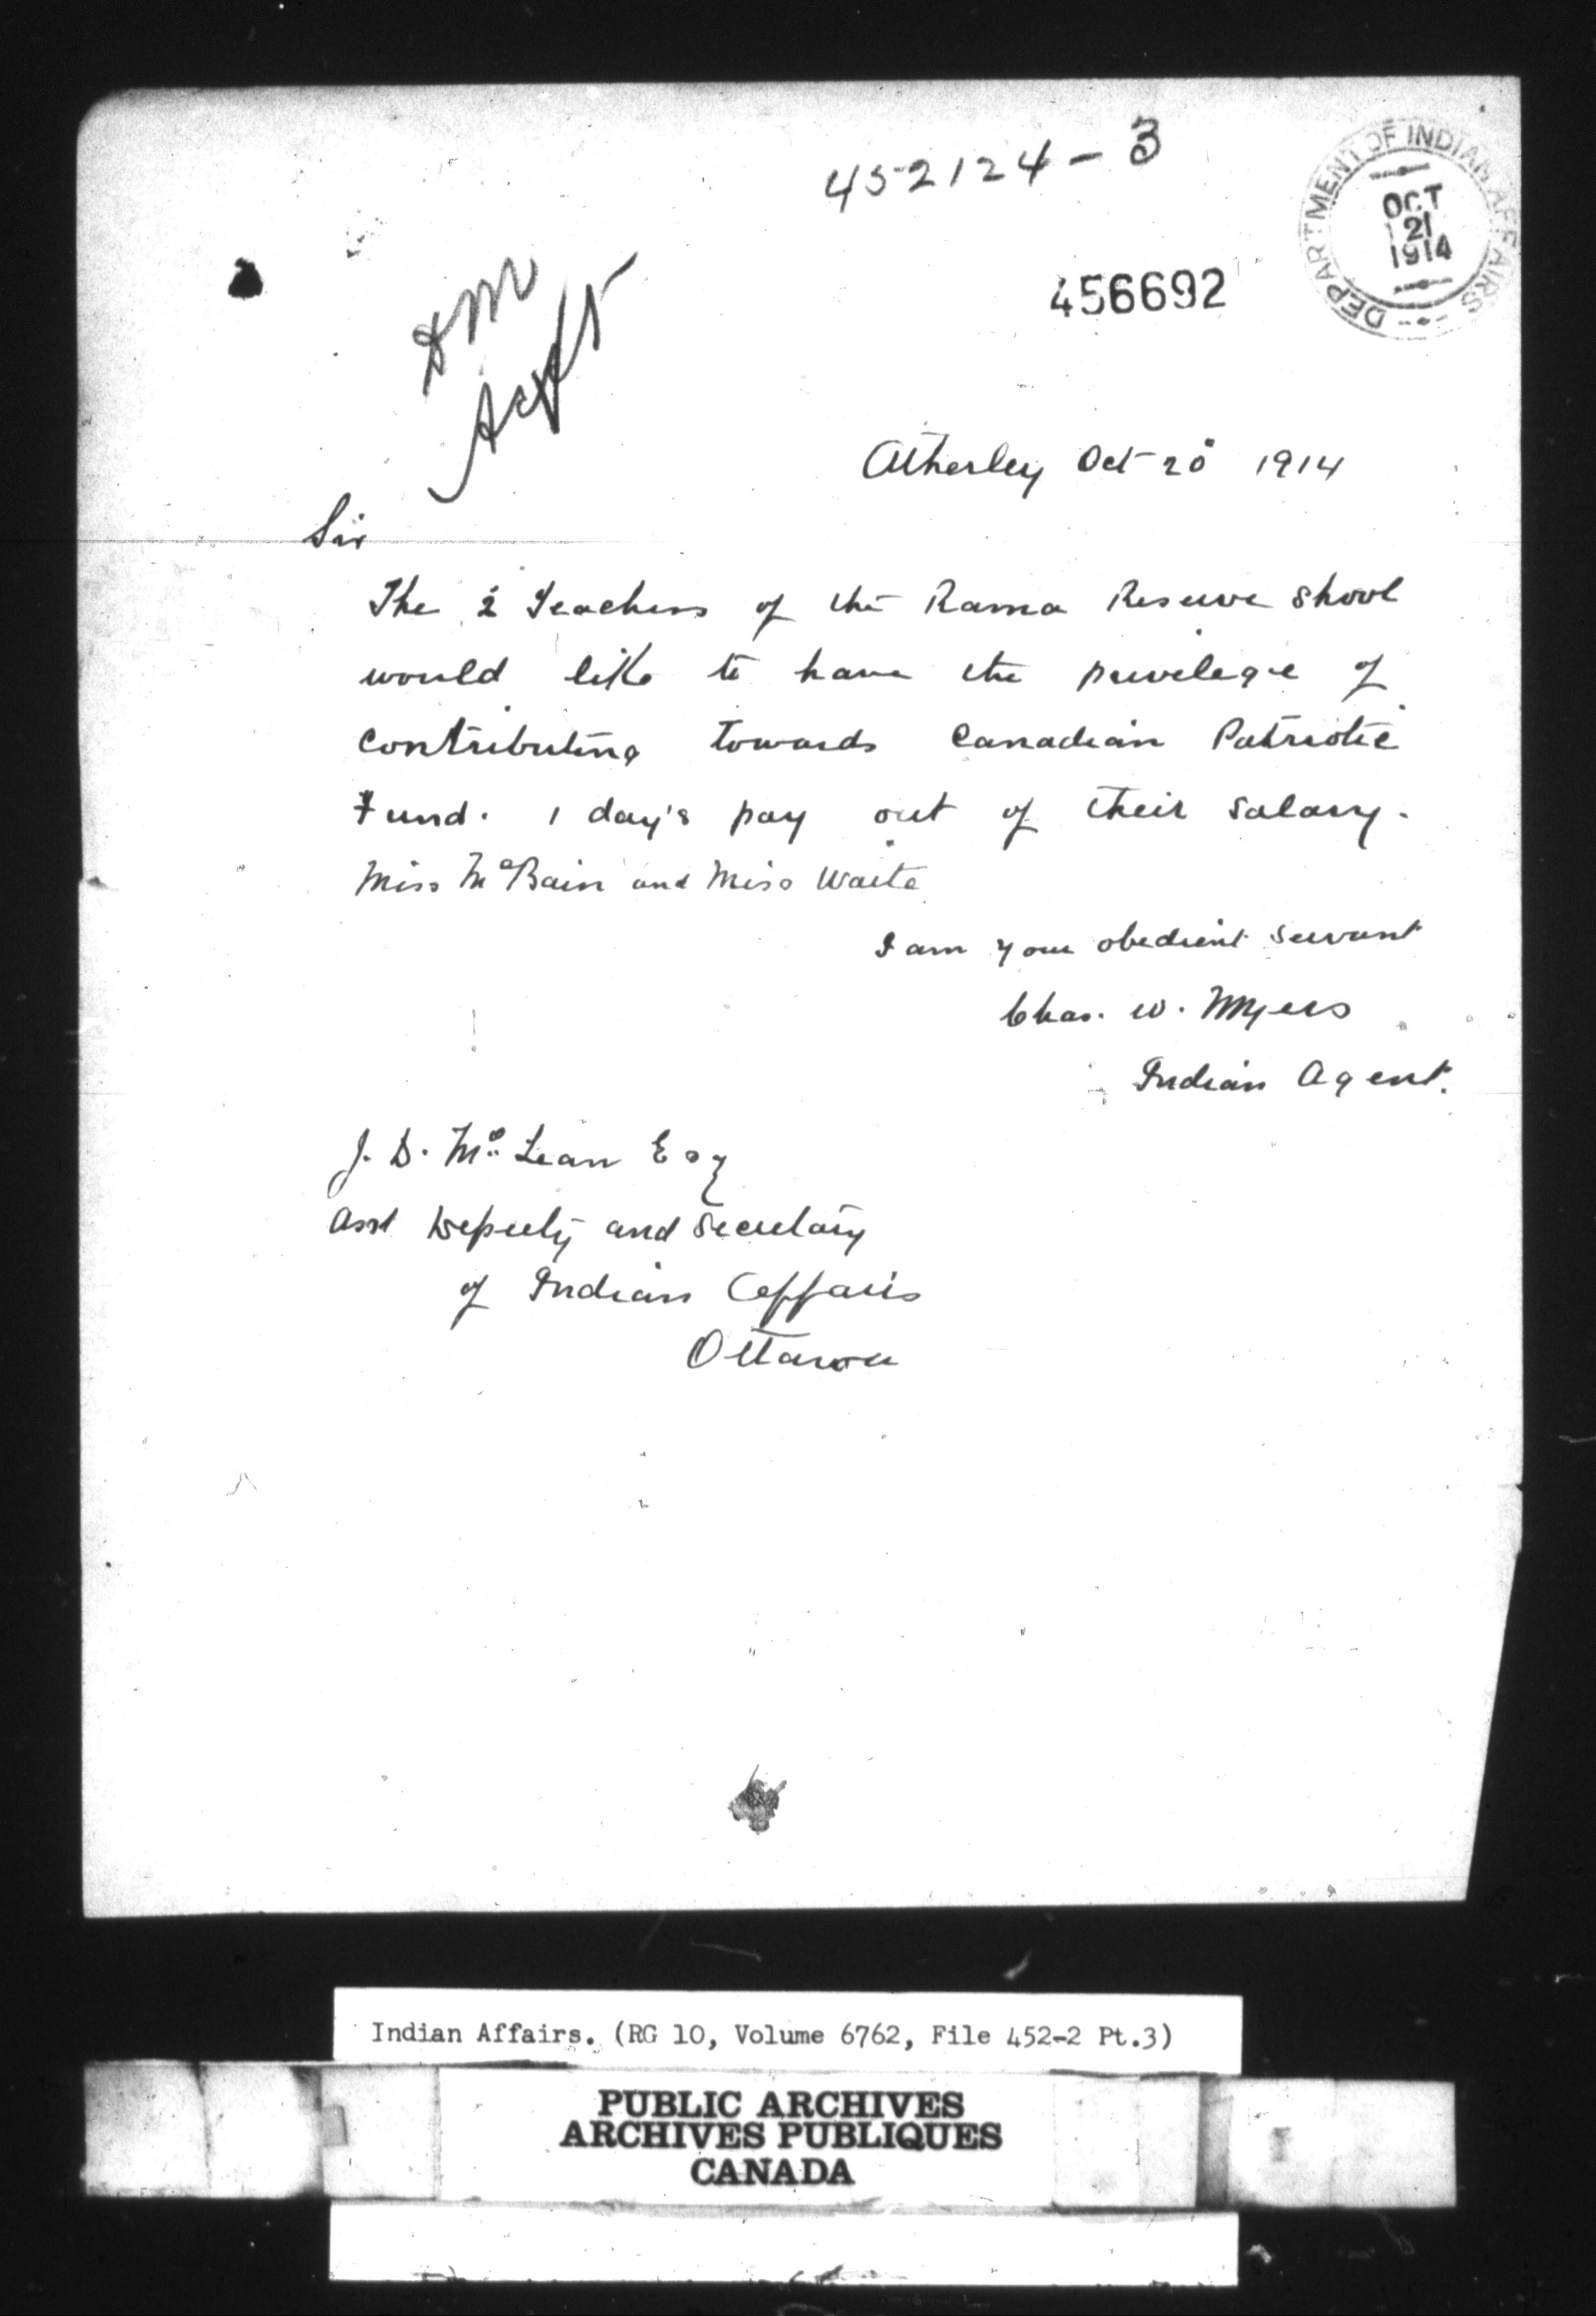 452124 - 3
DEPARTMENT OF INDIAN AFFAIRS
OCT
21
1914
456692
Atherley Oct 20 1914
Sir
The 2 Teachers of the Rama Reserve Shool
would like to have the privelege of
contributing towards Canadian Patriotic
Fund. 1 day's pay out of their salary.
Miss McBain and Miss Waite
I am your obedient servant
Chas. W. Myers
Indian Agent.
J. D. McLean Esq
Asst Deputy and Secretary
of Indian Affairs
Ottawa
Indian Affairs. (RG 10, Volume 6762, File 452-2 Pt.3)
PUBLIC ARCHIVES
ARCHIVES PUBLIQUES
CANADA